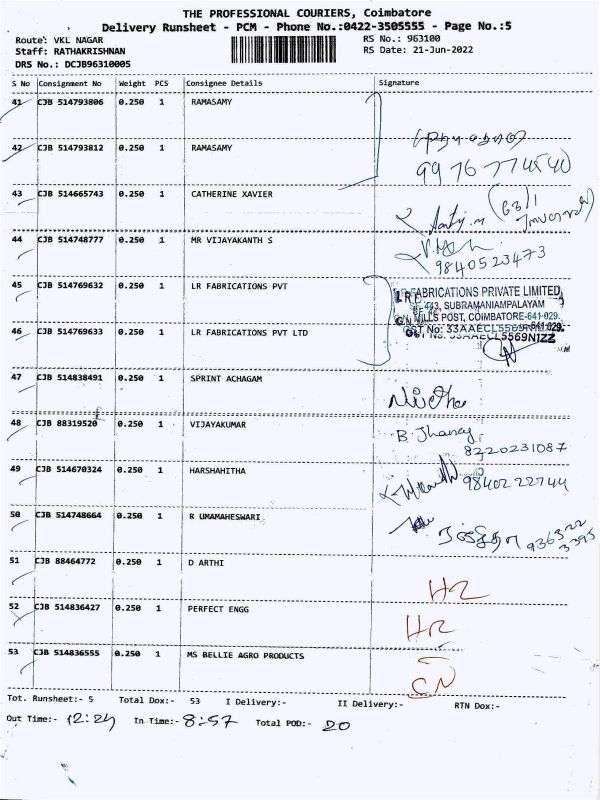 THE PROFESSIONAL COURIERS, Coimbatore
Delivery Runsheet - PCM - Phone No.:0422-3505555 - Page No.:5
Route: VKL NAGAR
RS No.: 963100
Staff: RATHAKRISHNAN
RS Date: 21-Jun-2022
DRS No.: DCJB96310005
S No Consignment No Weight PCS Consignee Details Signature
41 CJB 514793806 0.250 1 RAMASAMY
42 CJB 514793812 0.250 1 RAMASAMY
43 CJB 514665743 0.250 1 CATHERINE XAVIER
44 CJB 514748777 0.250 1 MR VIJAYAKANTH S
9840523473
45 CJB 514769632 0.250 1 LR FABRICATIONS PVT
LR FABRICATIONS PRIVATE LIMITED,
SUBRAMANIAMPALAYAM
MILLS POST, COIMBATORE-641 029.
GST No: 33AAECL5569N1ZZ
46 CJB 514769633 0.250 1 LR FABRICATIONS PVT LTD
47 CJB 514838491 0.250 1 SPRINT ACHAGAM
48 CJB 88319520 0.250 1 VIJAYAKUMAR
8220231087
49 CJB 514670324 0.250 1 HARSHAHITHA
9840222744
50 CJB 514748664 0.250 1 R UMAMAHESWARI
51 CJB 88464772 0.250 1 D ARTHI
52 CJB 514836427 0.250 1 PERFECT ENGG
53 CJB 514836555 0.250 1 MS BELLIE AGRO PRODUCTS
CN
Tot. Runsheet:- 5 Total Dox:- 53 I Delivery:- II Delivery:- RTN Dox:-
Out Time:- 12:24 In Time:- 8:57 Total POD:- 20